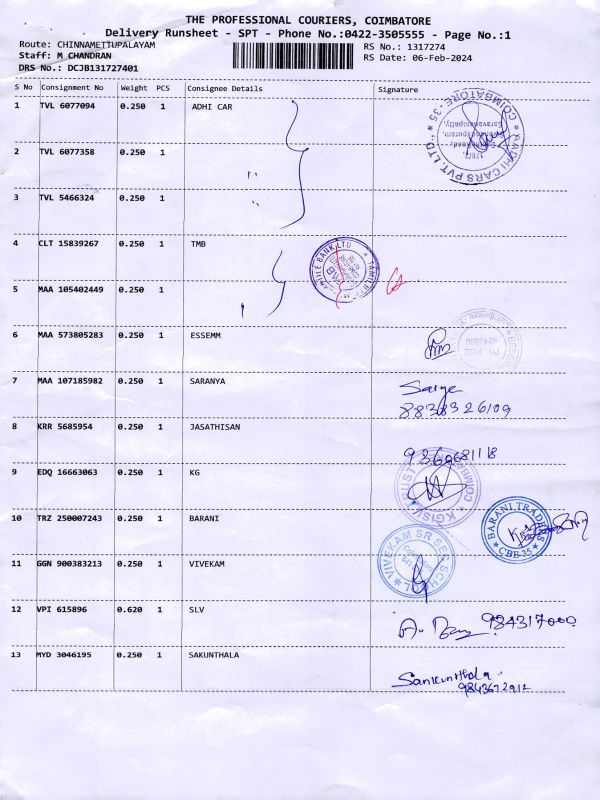 THE PROFESSIONAL COURIERS, COIMBATORE
Delivery Runsheet - SPT - Phone No.:0422-3505555 - Page No.:1
Route: CHINNAMETTUPALAYAM RS No.: 1317274
Staff: M CHANDRAN RS Date: 06-Feb-2024
DRS No.: DCJB131727401
S No Consignment No Weight PCS Consignee Details Signature
1 TVL 6077094 0.250 1 ADHI CAR
AADHI CARS PVT. LTD. * COIMBATORE-35 *
2 TVL 6077358 0.250 1 "
3 TVL 5466324 0.250 1 "
4 CLT 15839267 0.250 1 TMB
5 MAA 105402449 0.250 1
6 MAA 573805283 0.250 1 ESSEMM
PH 0422
7 MAA 107185982 0.250 1 SARANYA
8838326109
8 KRR 5685954 0.250 1 JASATHISAN
9 EDQ 16663063 0.250 1 KG
10 TRZ 250007243 0.250 1 BARANI
BARANI TRADERS * CBE-35 *
11 GGN 900383213 0.250 1 VIVEKAM
VIVEKAM SR SEC SCHOOL
12 VPI 615896 0.620 1 SLV
13 MYD 3046195 0.250 1 SAKUNTHALA
9843672912